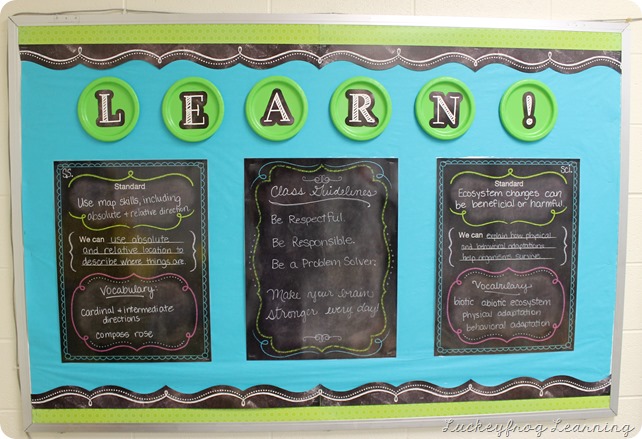 LEARN!
SS.
Standard
Use map skills, including
absolute + relative direction.
We can use absolute
and relative location to
describe where things are
Vocabulary
Cardinal + intermediate
directions
compass rose
Class Guidelines
Be Respectful.
Be Responsible.
Be a Problem Solver.
Make your brain
stronger every day!
Sci.
Standard
Ecosystem changes can
be beneficial or harmful.
We can explain how physical
and behavioral adaptations
help organisms survive.
Vocabulary
biotic abiotic ecosystem
physical adaptation
behavioral adaptation
Luckeyfrog Learning